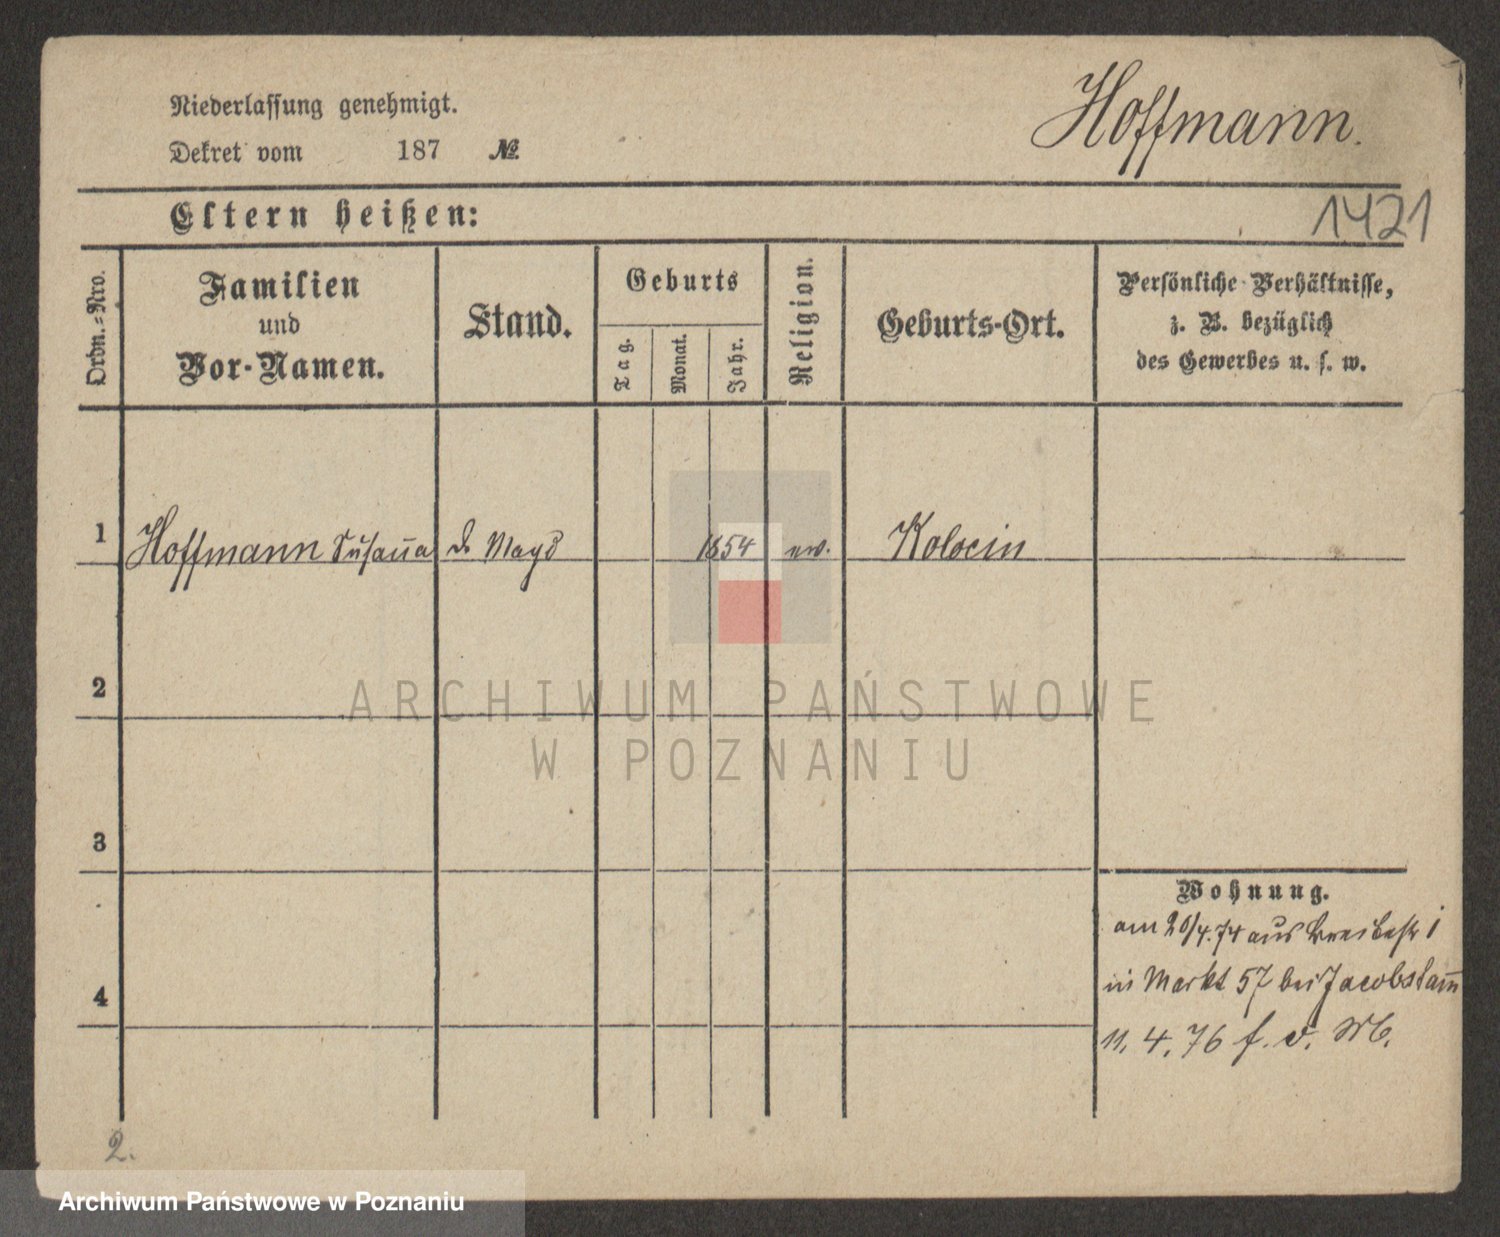 Niederlassung genehmigt.
Hoffmann.
Dekret vom 187 №
Eltern heißen:
1421
Ordn.-Nro.
Familien
und
Vor-Namen.
Stand.
Geburts
Tag.
Monat.
Jahr.
Religion.
Geburts-Ort.
Persönliche Verhältnisse,
z. B. bezüglich
des Gewerbes u. s. w.
1 Hoffmann Susanna d. Magd 1854 ev. Kolocin
2
ARCHIWUM PAŃSTWOWE
W POZNANIU
3
Wohnung.
am 20/4.74 aus
in Markt 57 bei Jacobsamm
4
11. 4. 76 f. v.
2.
Archiwum Państwowe w Poznaniu